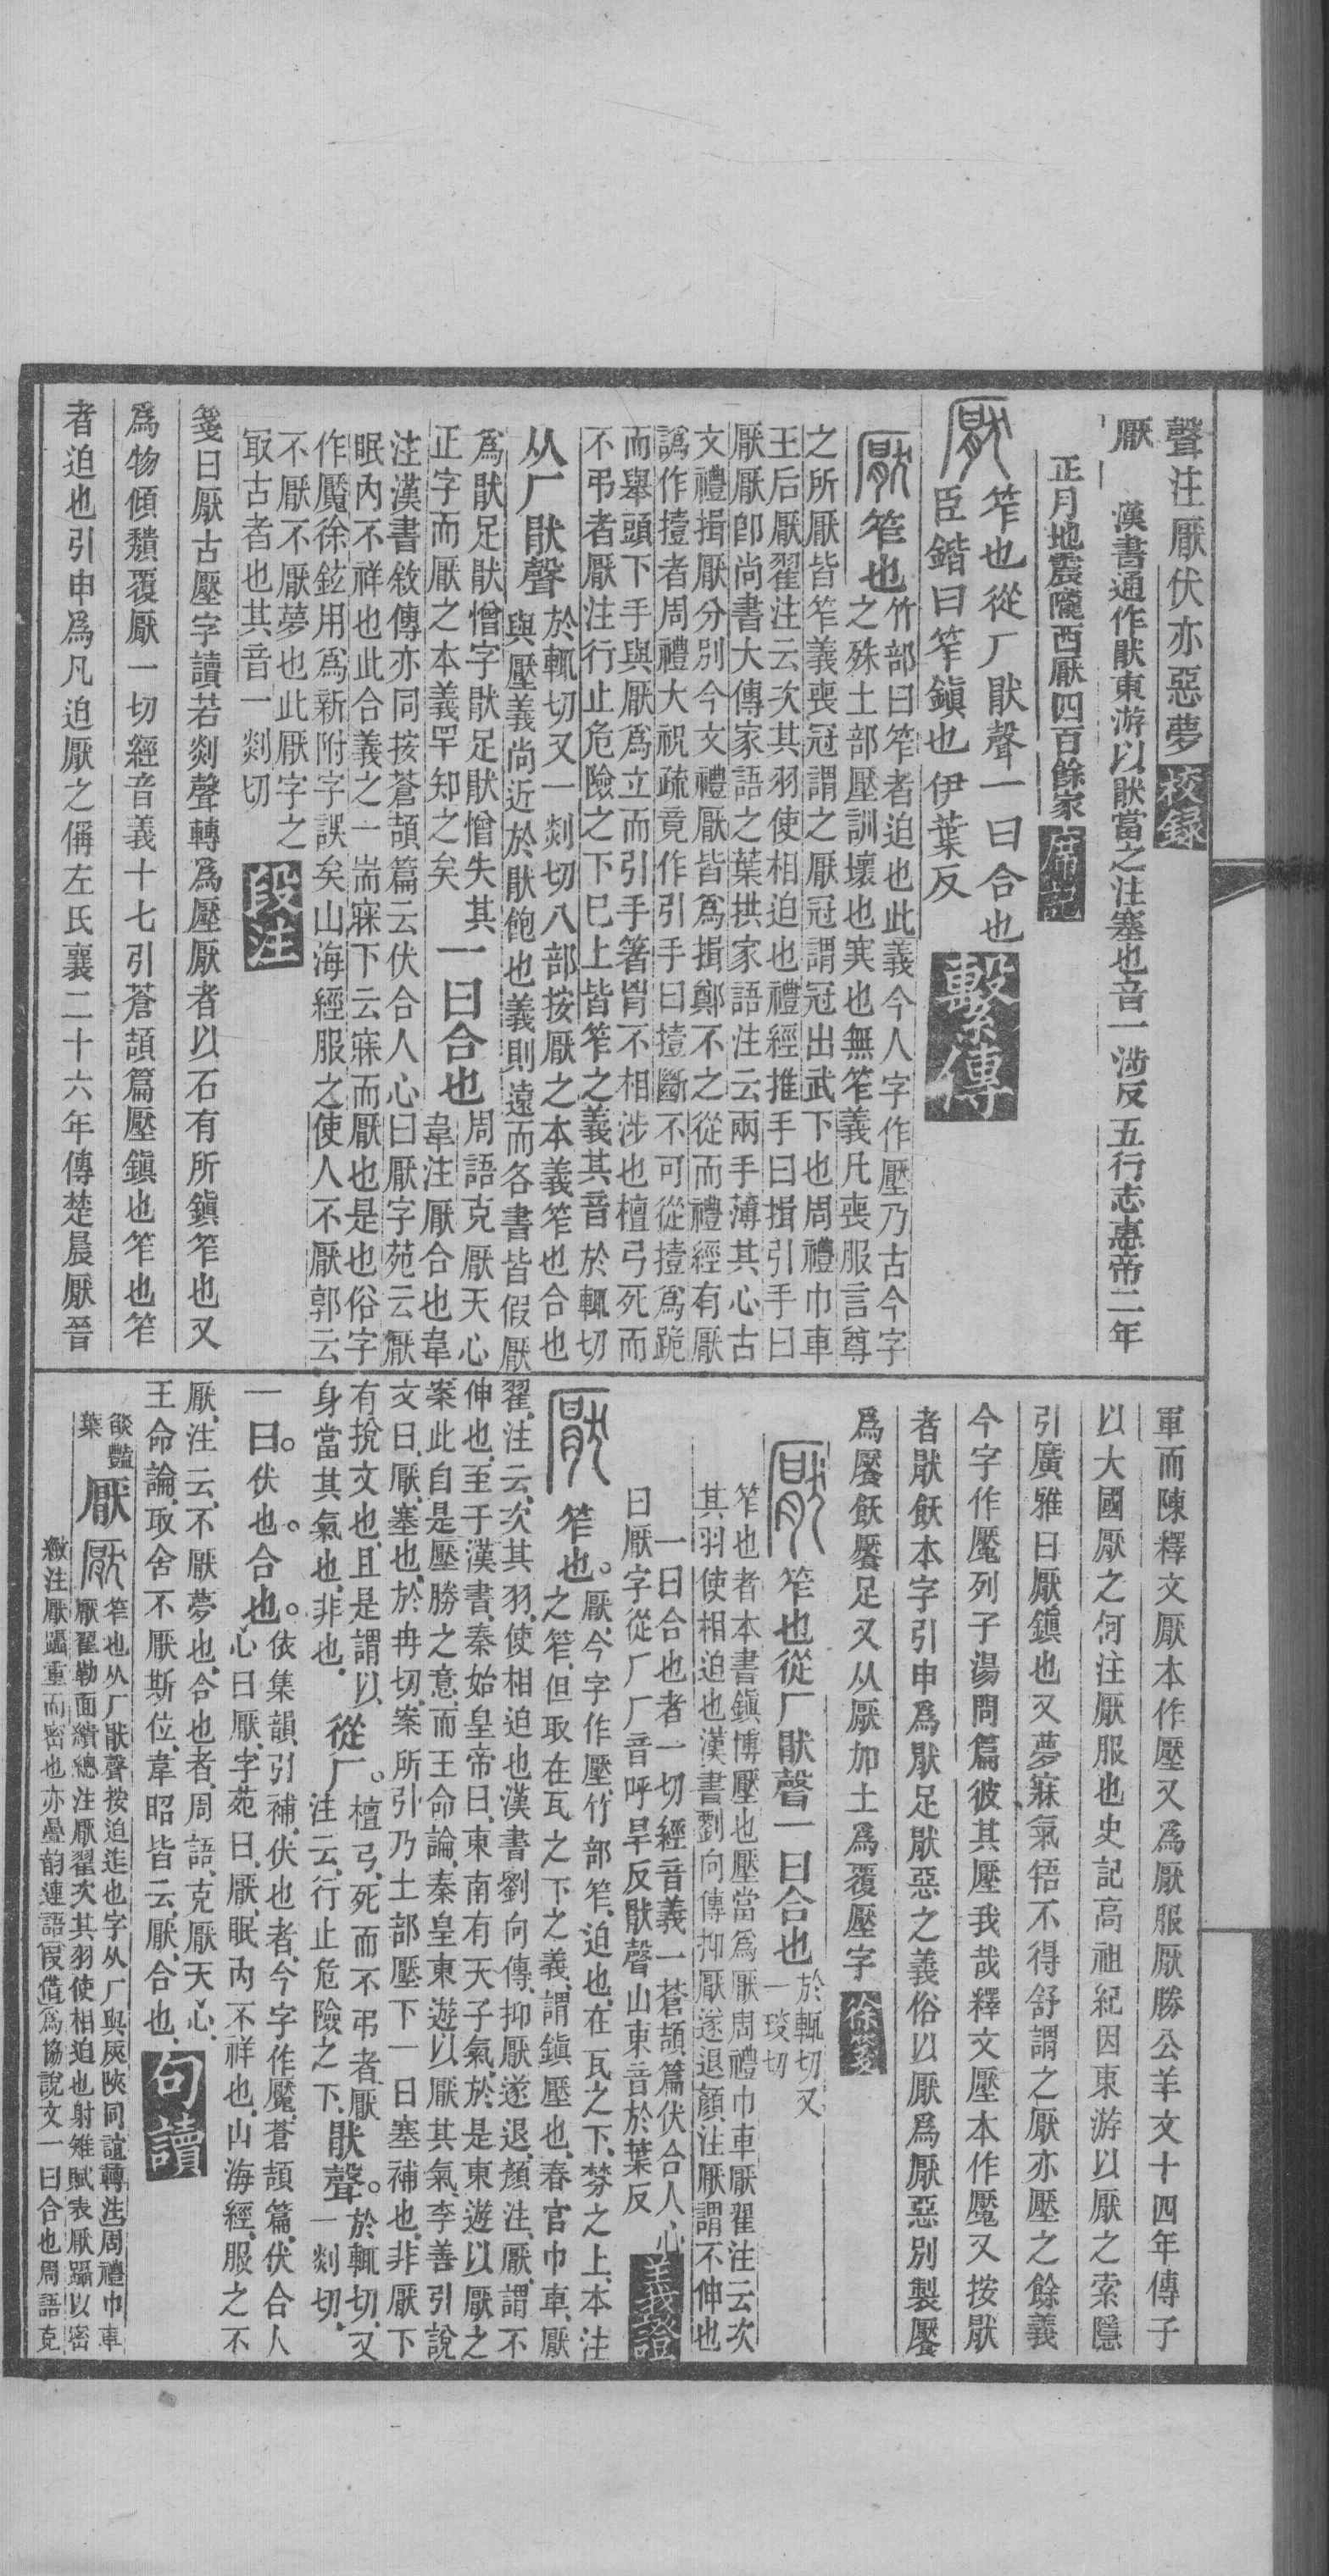 聲注厭伏亦惡夢校錄
厭 漢書通作猒東游以猒當之注塞也音一涉反五行志惠帝二年
正月地震隴西厭四百餘家席記
厭笮也從厂猒聲一曰合也
臣鍇曰笮鎮也伊葉反
繫傳
厭笮也
竹部曰笮者迫也此義今人字作壓乃古今字
之殊土部壓訓壞也𡨄也無笮義凡喪服言尊
之所厭皆笮義喪冠謂之厭冠謂冠出武下也周禮巾車
王后厭翟注云次其羽使相迫也禮經推手曰揖引手曰
厭厭卽尚書大傳家語之葉拱家語注云兩手薄其心古
文禮揖厭分別今文禮厭皆爲揖鄭不之從而禮經有厭
譌作擡者周禮大祝疏竟作引手曰擡斷不可從擡爲跪
而舉頭下手與厭爲立而引手箸胷不相涉也檀弓死而
不弔者厭注行止危險之下巳上皆笮之義其音於輒切
从厂猒聲
於輒切又一剡切八部按厭之本義笮也合也
與壓義尚近於猒飽也義則遠而各書皆假厭
爲猒足猒憎字猒足猒憎失其
正字而厭之本義罕知之矣
一曰合也
周語克厭天心
韋注厭合也韋
注漢書敘傳亦同按蒼頡篇云伏合人心曰厭字苑云厭
眠內不祥也此合義之一耑寐下云寐而厭也是也俗字
作魘徐鉉用爲新附字誤矣山海經服之使人不厭郭云
不厭不厭夢也此厭字之
㝡古者也其音一剡切
段注
箋曰厭古壓字讀若剡聲轉爲壓厭者以石有所鎭笮也又
爲物傾頹覆厭一切經音義十七引蒼頡篇壓鎭也笮也笮
者迫也引申爲凡迫厭之偁左氏襄二十六年傳楚晨厭晉
軍而陳釋文厭本作壓又爲厭服厭勝公羊文十四年傳子
以大國厭之何注厭服也史記高祖紀因東游以厭之索隱
引廣雅曰厭鎭也又夢寐氣牾不得舒謂之厭亦壓之餘義
今字作魘列子湯問篇彼其壓我哉釋文壓本作魘又按猒
者猒飫本字引申爲猒足猒惡之義俗以厭爲厭惡別製饜
爲饜飫饜足又从厭加土爲覆壓字徐箋
厭笮也從厂猒聲一曰合也
於輒切又
一琰切
笮也者本書鎭博壓也壓當爲厭周禮巾車厭翟注云次
其羽使相迫也漢書劉向傳抑厭遂退顏注厭謂不伸也
一曰合也者一切經音義一蒼頡篇伏合人心
曰厭字從厂厂音呼旱反猒聲山東音於葉反
義證
厭笮也。
厭、今字作壓、竹部笮、迫也、在瓦之下、棼之上、本注
之笮、但取在瓦之下之義、謂鎭壓也、春官巾車、厭
翟、注云、次其羽、使相迫也、漢書劉向傳、抑厭遂退、顏注、厭、謂不
伸也、至于漢書、秦始皇帝曰、東南有天子氣、於是東遊以厭之
案此自是壓勝之意、而王命論、秦皇東遊以厭其氣、李善引說
文曰、厭、塞也、於冉切、案所引乃土部壓下一曰塞補也、非厭下
有挩文也、且是謂以
身當其氣也、非也、
從厂。
檀弓、死而不弔者、厭、
注云、行止危險之下、
猒聲。
於輒切、又
一剡切、
一曰。伏也。合也。
依集韻引補、伏也者、今字作魘、蒼頡篇、伏合人
心曰厭、字苑曰、厭、眠內不祥也、山海經、服之不
厭、注云、不厭夢也、合也者、周語、克厭天心、
王命論、取舍不厭斯位、韋昭皆云、厭、合也、
句讀
𦦨豔
葉
厭 厭
笮也从厂猒聲按迫迮也字从厂與灰陝同誼轉注周禮巾車
厭翟勒面繢總注厭翟次其羽使相迫也射雉賦表厭躡以密
緻注厭躡重而密也亦疊韵連語叚借爲協說文一曰合也周語克